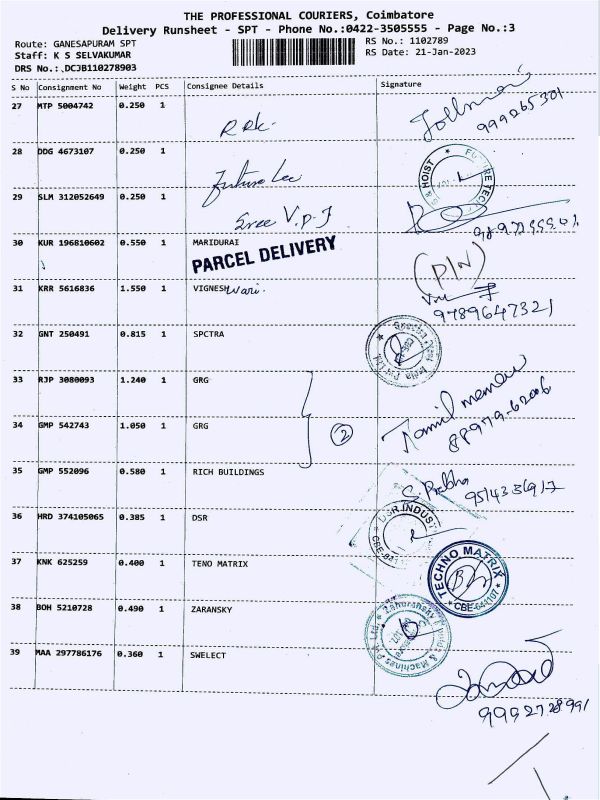 THE PROFESSIONAL COURIERS, Coimbatore
Delivery Runsheet - SPT - Phone No.:0422-3505555 - Page No.:3
Route: GANESAPURAM SPT
Staff: K S SELVAKUMAR
DRS No.:.DCJB110278903
RS No.: 1102789
RS Date: 21-Jan-2023
S No Consignment No Weight PCS Consignee Details Signature
27 MTP 5004742 0.250 1
999265301
28 DDG 4673107 0.250 1
Future Lee
29 SLM 312052649 0.250 1
Sree V.P.J
30 KUR 196810602 0.550 1 MARIDURAI
PARCEL DELIVERY
(P/N)
31 KRR 5616836 1.550 1 VIGNESHwari.
9789647321
32 GNT 250491 0.815 1 SPCTRA
33 RJP 3080093 1.240 1 GRG
2
34 GMP 542743 1.050 1 GRG
35 GMP 552096 0.580 1 RICH BUILDINGS
S Prabha
36 HRD 374105065 0.385 1 DSR
DSR INDUST
37 KNK 625259 0.400 1 TENO MATRIX
TECHNO MATRIX
CBE-641107
38 BOH 5210728 0.490 1 ZARANSKY
39 MAA 297786176 0.360 1 SWELECT
9992728991